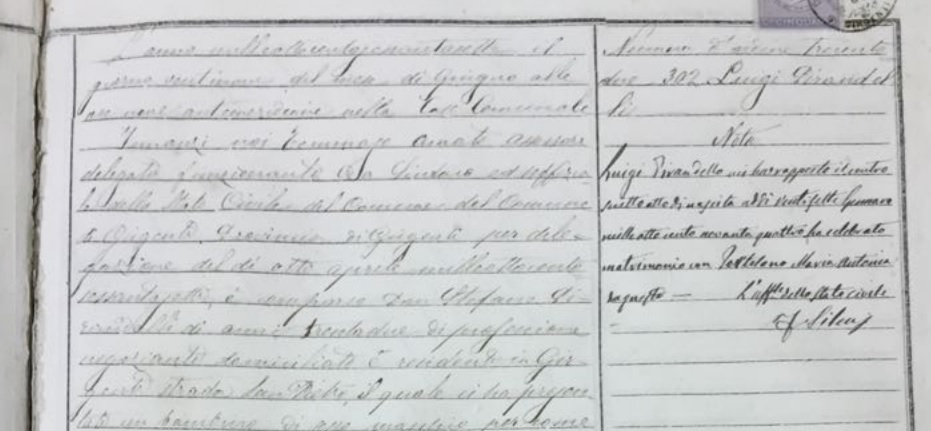 L'anno milleottocentosessantasette il
giorno ventinove del mese di Giugno alle
ore nove antimeridiane nella Casa Comunale
Innanzi noi Tommaso Amato assessore
delegato funzionante da Sindaco ed uffizia
le dello Stato Civile del Comune del Comune
di Girgenti Provincia di Girgenti per dele=
gazione del dì otto aprile milleottocento
sessantasette, è comparso Don Stefano Pi
randello di anni trentadue di professione
negoziante domiciliato e residente in Gir
genti strada San Pietro, il quale ci ha presen
tato un bambino di sesso maschile per come
Numero d'ordine trecento
due 302 Luigi Pirandel
lo
Nota
Luigi Pirandello
atto di nascita addì ventisette Gennaro
mille otto cento novanta quattro ha celebrato
matrimonio con Portolano Maria Antonia
L'uff.le dello stato civile